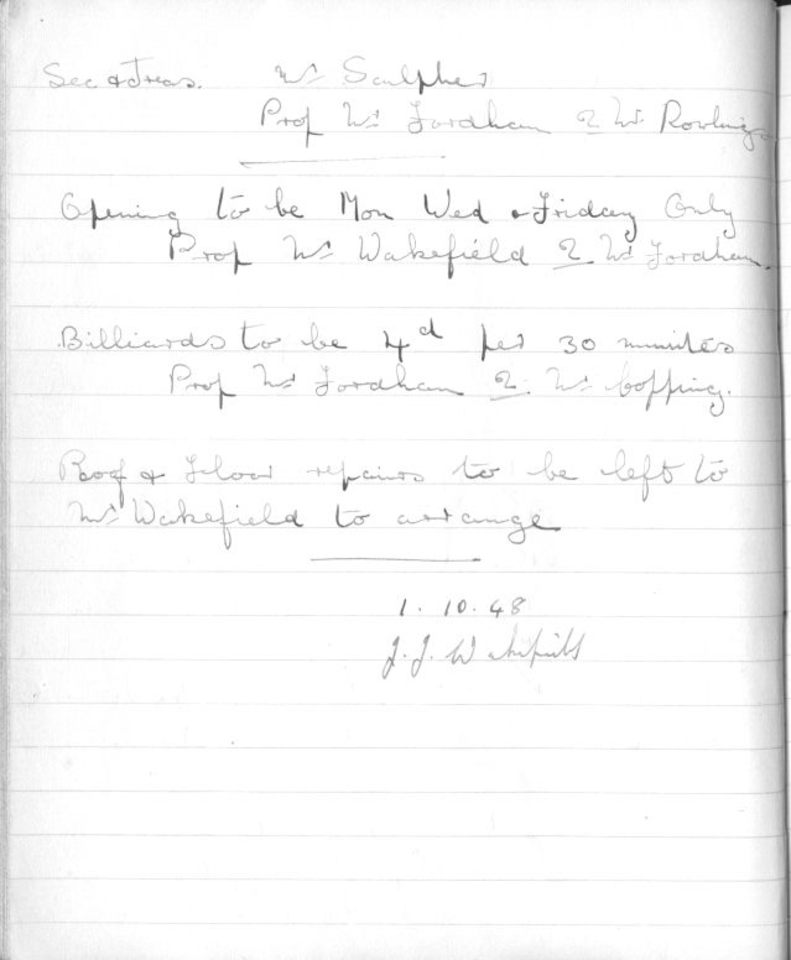 Sec & Treas. Mr Sculpher
Prop Mr Fordham 2 Mr Rowlings
Opening to be Mon Wed & Friday Only
Prop Mr Wakefield 2 Mr Fordham.
Billiards to be 4d per 30 minutes
Prop Mr Fordham 2. Mr Copping.
Roof & Floor repairs to be left to
Mr Wakefield to arrange
1. 10. 48
J. J. Wakefield